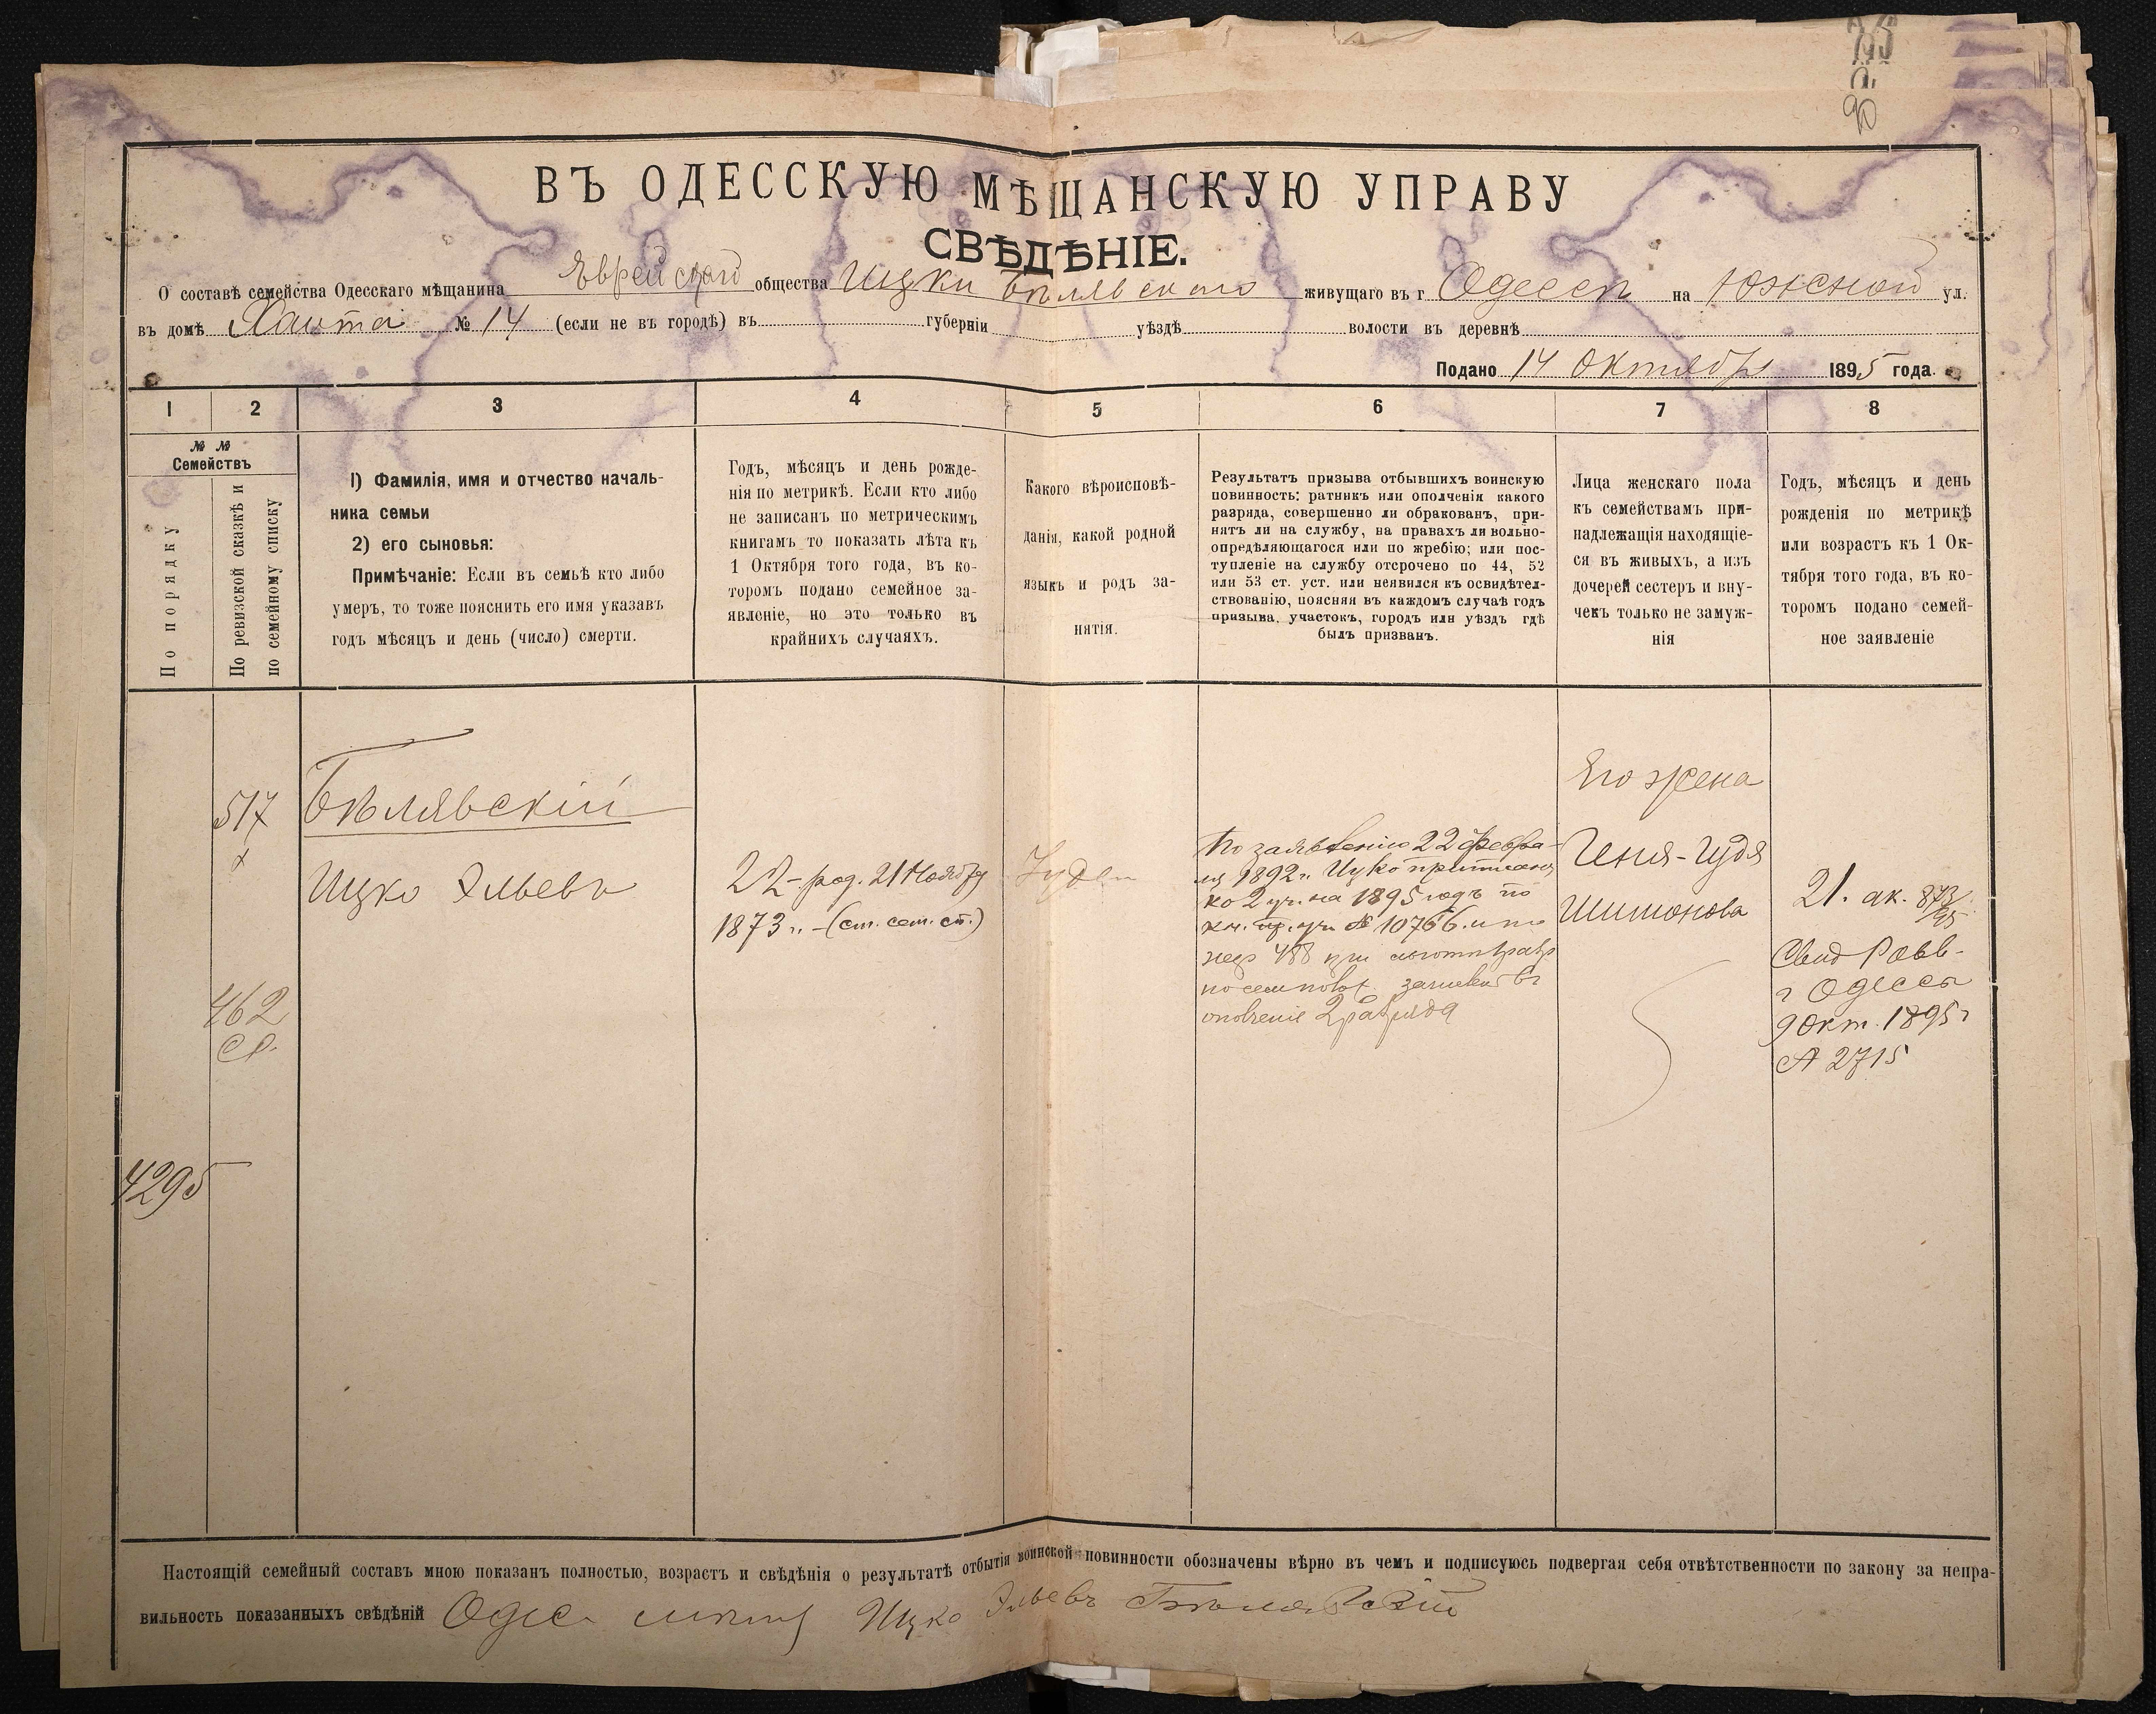 90
ВЪ ОДЕССКУЮ МѢЩАНСКУЮ УПРАВУ
СВѢДѢНІЕ.
О составѣ семейства Одесскаго мѣщанина Еврейскаго общества Ицки Бѣлявскаго живущаго въ г Одессѣ на Южной ул.
въ домѣ № 14 (если не въ городѣ) въ губерніи уѣздѣ волости въ деревнѣ
Подано 14 Октября 1895 года.
1 2 3 4 5 6 7 8
№ № Семействъ
По порядку
По ревизской сказкѣ и по семейному списку
1) Фамилія, имя и отчество началь-
ника семьи
2) его сыновья:
Примѣчаніе: Если въ семьѣ кто либо
умеръ, то тоже пояснить его имя указавъ
годъ мѣсяцъ и день (число) смерти.
Годъ, мѣсяцъ и день рожде-
нія по метрикѣ. Если кто либо
не записанъ по метрическимъ
книгамъ то показать лѣта къ
1 Октября того года, въ ко-
торомъ подано семейное за-
явленіе, но это только въ
крайнихъ случаяхъ.
Какого вѣроисповѣ-
данія, какой родной
языкъ и родъ за-
нятія.
Результатъ призыва отбывшихъ воинскую
повинность: ратникъ или ополченія какого
разряда, совершенно ли обракованъ, при-
нятъ ли на службу, на правахъ ли вольно-
опредѣляющагося или по жребію; или пос-
тупленіе на службу отсрочено по 44, 52
или 53 ст. уст. или неявился къ освидѣтел-
ствованію, поясняя въ каждомъ случаѣ годъ
призыва, участокъ, городъ или уѣздъ гдѣ
былъ призванъ.
Лица женскаго пола
къ семействамъ при-
надлежащія находящіе-
ся въ живыхъ, а изъ
дочерей сестеръ и вну-
чекъ только не замуж-
нія
Годъ, мѣсяцъ и день
рожденія по метрикѣ
или возрастъ къ 1 Ок-
тября того года, въ ко-
торомъ подано семей-
ное заявленіе
517
462
4295
Бѣлявскій
Ицко Эльевъ
22 - род. 21 Ноября
1873 г. - (ст. сем. сп.)
Іудей
По заявленію 22 Февра-
ля 1892 г. Ицко приписанъ
ко 2 уч. на 1895 годъ по
№ 10766 и по
жер 488 при
зачисленъ въ
ополченіе 2 разряда
Его жена
Геня-Идя
Шимонова
21. ак. 873/95
Свид Равв.
г Одессы
9 Окт. 1895 г
№ 2715
Настоящій семейный составъ мною показанъ полностью, возрастъ и свѣдѣнія о результатѣ отбытія воинской повинности обозначены вѣрно въ чемъ и подписуюсь подвергая себя отвѣтственности по закону за непра-
вильность показанныхъ свѣдѣній Ицко Эльевъ Бѣлявскій